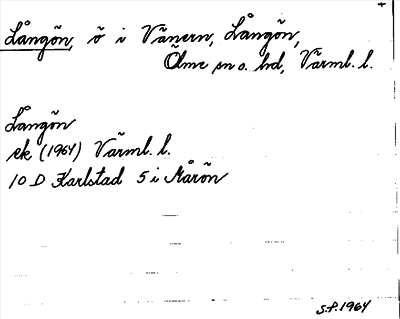 Långön, ö i Vänern, Långön,
Ölme sn o. hd, Värml. l.
Långön
ek (1964) Värml. l.
10 D Karlstad 5 i Årön
S.P. 1964